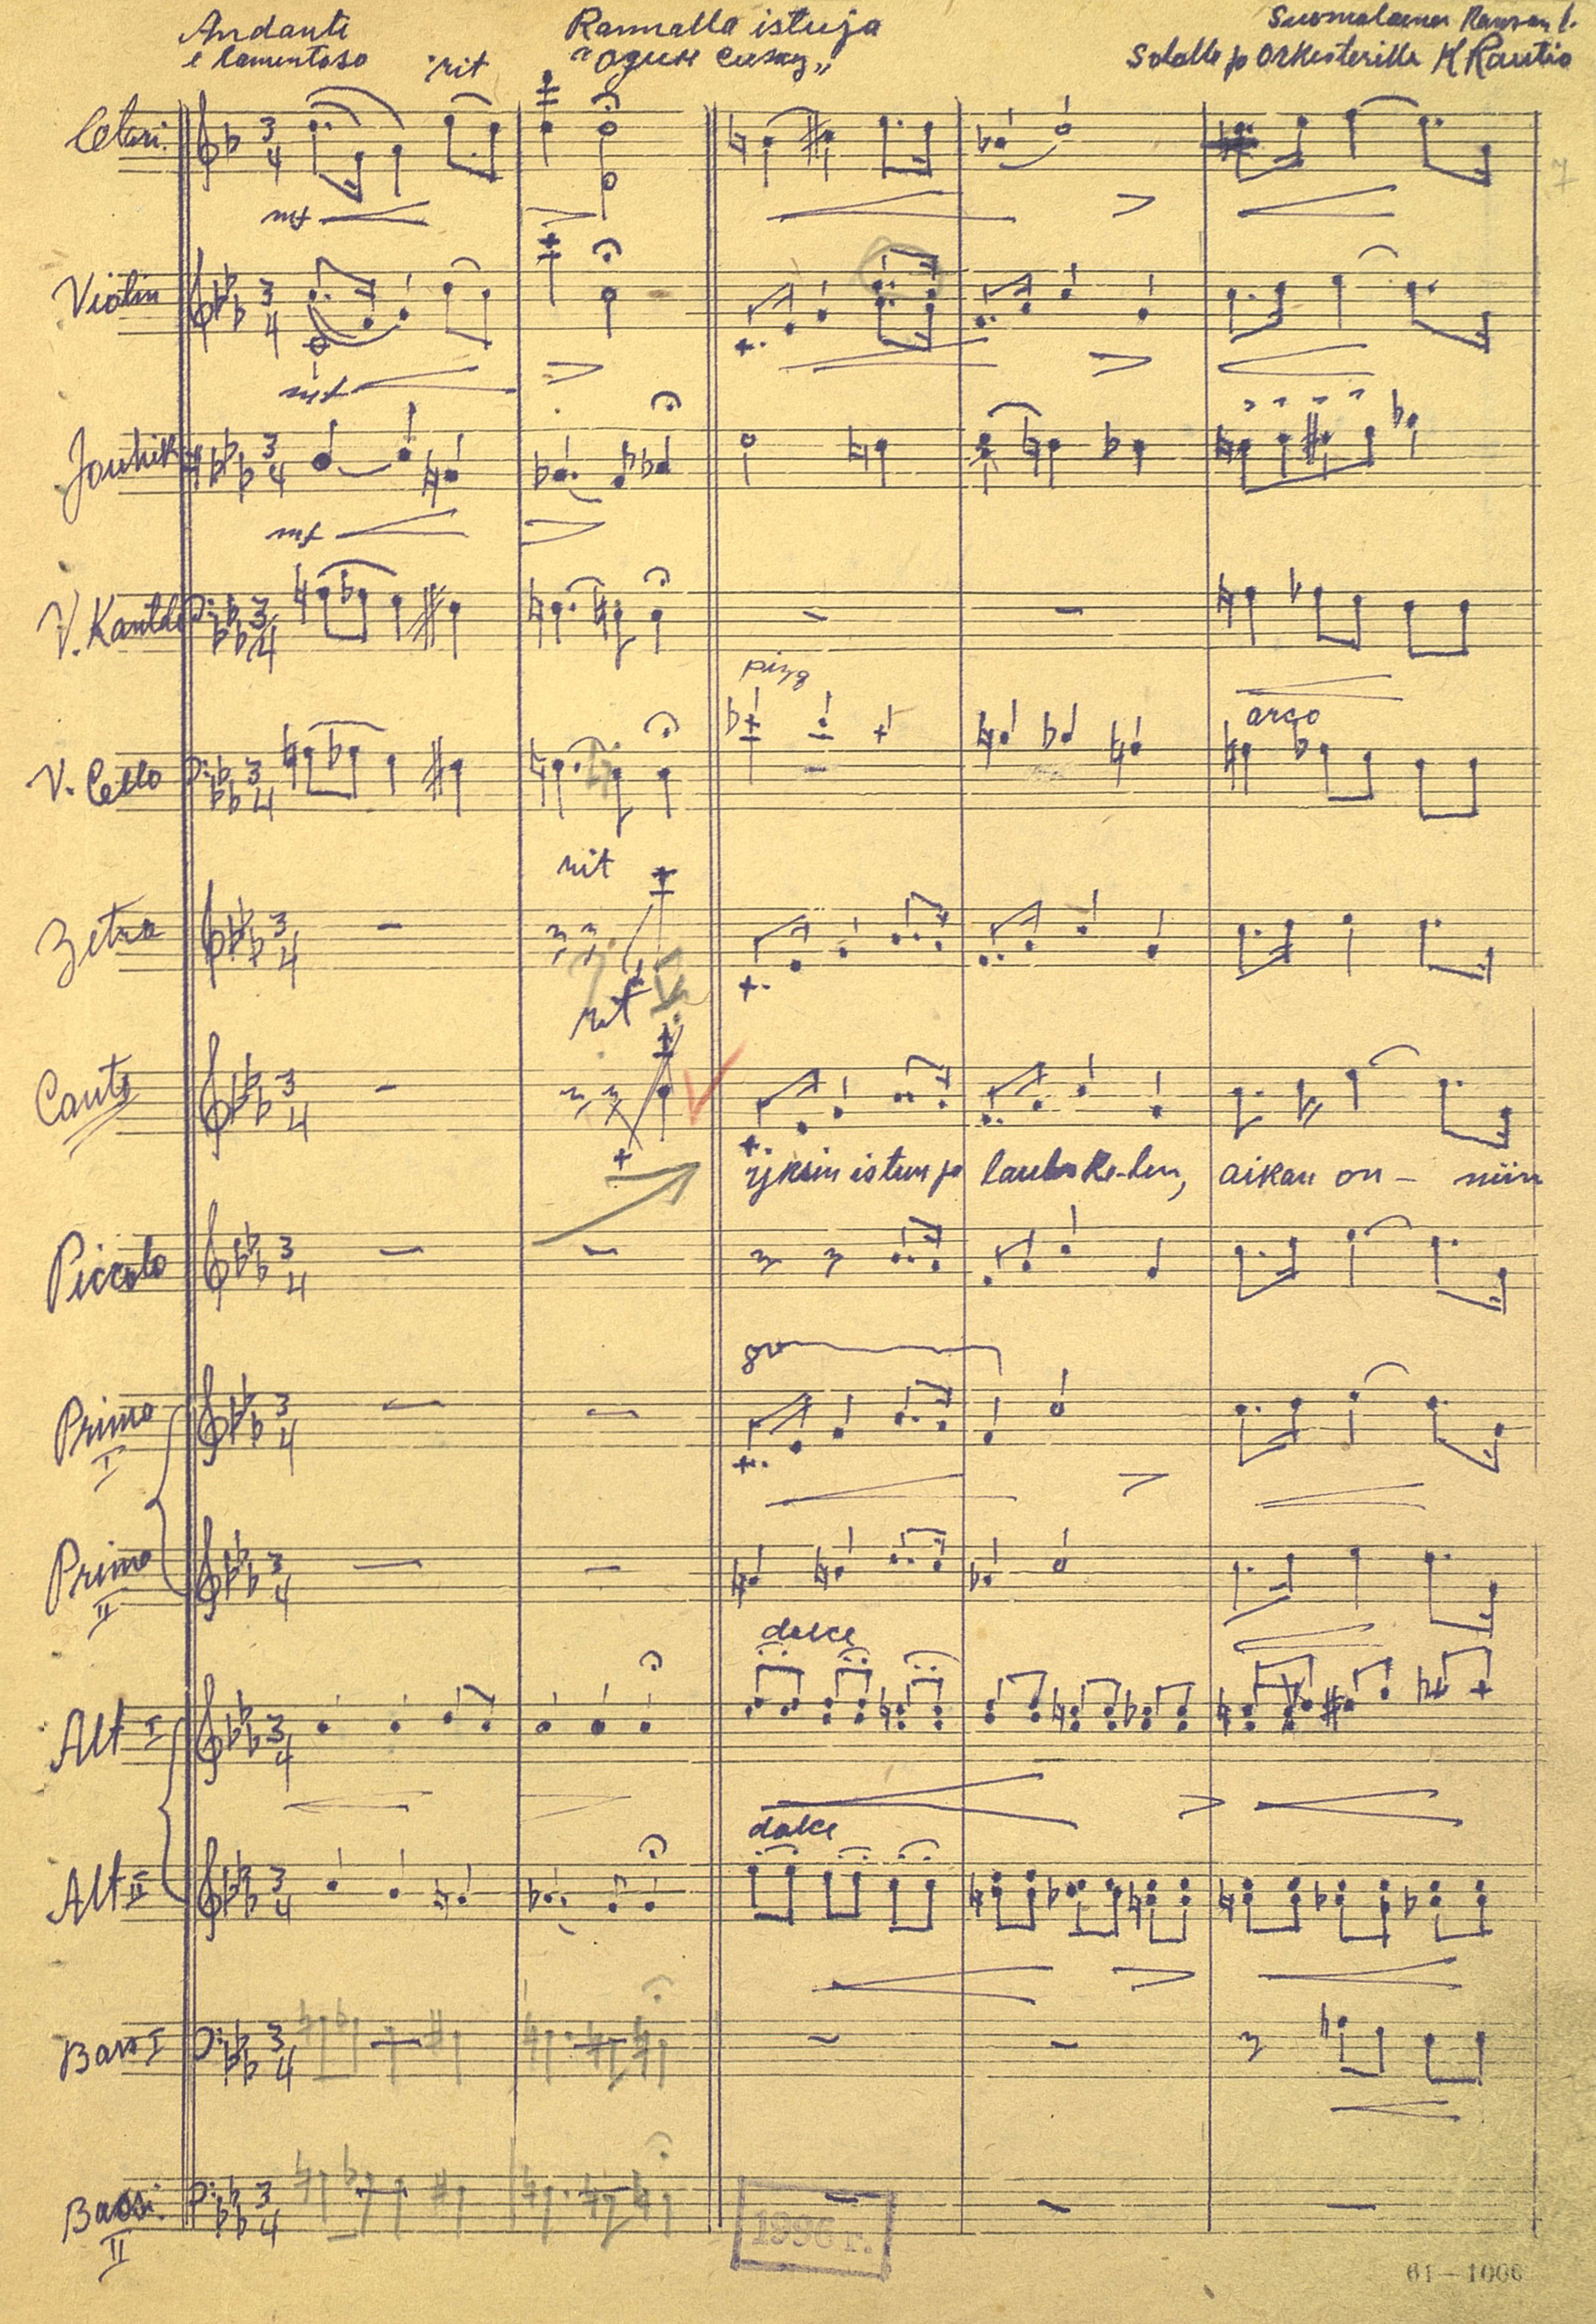 Andante
e lamentoso
rit
Rannalla istuja
"один сижу"
Suomalainen Kansan l.
Solalle ja Orkesterille K Rautio
7
mf
Violin
mf
Jouhik
mf
V. Kantele
pizz
arco
V. Cello
rit
Zetra
rit
Canto
yksin istun ja laulas ke-len, aikan on - niin
Piccolo
8va
Primo
I
Primo
II
dolce
Alt I
dolce
Alt II
Bass I
Bassi.
II
1996 г.
61-1006